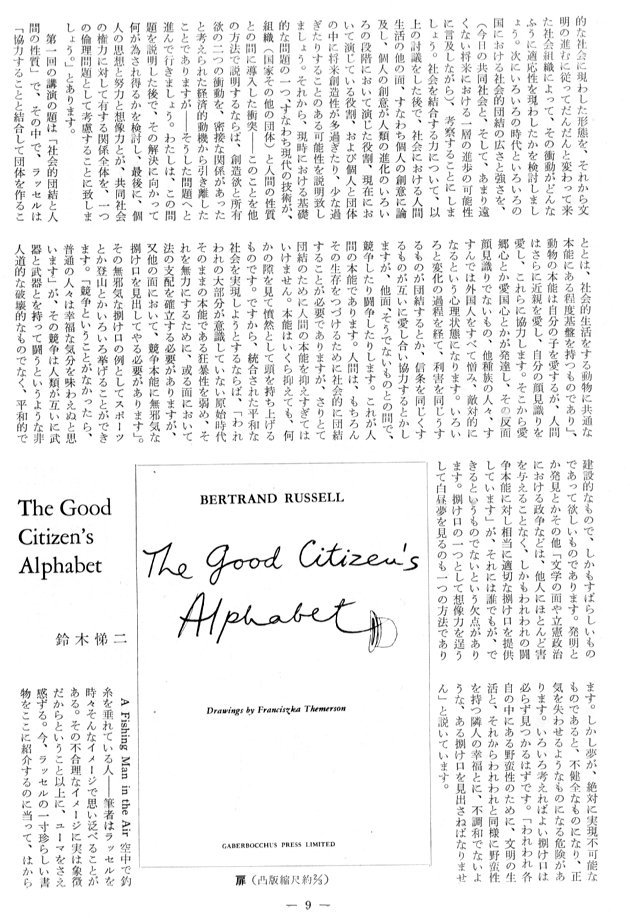 的な社会に現われた形態を、それから文
明の進むに従ってだんだんと変わって来
た社会組織によって、その衝動がどんな
ふうに適応性を現わしたかを検討しまし
ょう。次にいろいろの時代といろいろの
国における社会的団結の広さと強さを、
(今日の共同社会と、そして、あまり遠
くない将来における一層の進歩の可能性
に言及しながら)、考察することにしま
しょう。社会を結合する力について、以
上の討議をした後で、社会における人間
生活の他の面、すなわち個人の創意に論
及し、個人の創意が人類の進化のいろい
ろの段階において演じた役割、現在にお
いて演じている役割、および個人と団体
の中に将来創造性が多過ぎたり、少な過
ぎたりすることのある可能性を説明致し
ましょう。それから、現時における基礎
的な問題の一つ、すなわち現代の技術が、
組織(国家その他の団体)と人間の性質
との間に導入した衝突——このことを他
の方法で説明するならば、創造欲と所有
欲の二つの衝動を、密接な関係があった
と考えられた経済的動機から引き離した
ことでありますが——そうした問題へと
進んで行きましょう。わたしは、この問
題を説明した後で、その解決に向かって
何が為され得るかを検討し、最後に、個
人の思想と努力と想像力とが、共同社会
の権力に対して有する関係全体を、一つ
の倫理問題として考慮することに致しま
しょう。」とあります。
第一回の講演の題は「社会的団結と人
間の性質」で、その中で、ラッセルは
「協力することと結合して団体を作るこ
ととは、社会的生活をする動物に共通な
本能にある程度基盤を持つものであり」、
動物の本能は自分の子を愛するが、人間
はさらに近親を愛し、自分の顔見識りを
愛し、これらに協力します。そこから愛
郷心とか愛国心とかが発達し、その反面
顔見識りでないもの、他種族の人々、す
すんでは外国人をすべて憎み、敵対的に
なるという心理状態になります。いろい
ろと変化の過程を経て、利害を同じうす
るものが団結するとか、信条を同じくす
るものが互いに愛し合い協力するとかし
ますが、他面、そうでないものとの間で、
競争したり闘争したりします。これが人
間の本能であります。人間は、もちろん
その生存をつづけるために社会的に団結
することが必要でありますが、さりとて
団結のために人間の本能を抑えすぎては
いけません。本能はいくら抑えても、何
かの隙を見て憤然として頭を持ち上げる
ものです。ですから、統合された平和な
社会を実現しようとするならば、「われ
われの大部分が意識していない原始時代
そのままの本能である狂暴性を弱め、そ
れを無力にするために、或る面において
法の支配を確立する必要がありますが、
又他の面において、競争本能に無邪気な
捌け口を見出してやる必要があります」。
その無邪気な捌け口の例としてスポーツ
とか登山とかいろいろ挙げることができ
ます。「競争ということがなかったら、
普通の人々は幸福な気分を味わえぬと思
います」が、その競争は人類が互いに武
器と武器とを持って闘うというような非
人道的な破壊的なものでなく、平和的で
建設的なもので、しかもすばらしいもの
であって欲しいものであります。発明と
か発見とかその他「文学の面や立憲政治
における政争などは、他人にほとんど害
を与えることなく、しかもわれわれの闘
争本能に対し相当に適切な捌け口を提供
しています」が、それには誰でもが、で
きるというものでないという欠点があり
ます。捌け口の一つとして想像力を逞う
して白昼夢を見るのも一つの方法であり
ます。しかし夢が、絶対に実現不可能な
ものであると、不健全なものになり、正
気を失わせるようなものになる危険があ
ります。いろいろ考えればよい捌け口は
必らず見つかるはずです。「われわれ各
自の中にある野蛮性のために、文明の生
活と、それからわれわれと同様に野蛮性
を持つ隣人の幸福とに、不調和でないよ
うな、ある捌け口を見出さねばなりませ
ん」と説いています。
The Good
Citizen's
Alphabet
鈴木悌二
BERTRAND RUSSELL
The Good Citizen's
Alphabet
Drawings by Franciszka Themerson
GABERBOCCHUS PRESS LIMITED
扉(凸版縮尺約⅔)
A Fishing Man in the Air 空中で釣
糸を垂れている人——筆者はラッセルを
時々そんなイメージで思い泛べることが
ある。その不合理なイメージに実は象徴
だからということ以上に、ユーマをさえ
感ずる。今、ラッセルの一寸珍らしい書
物をここに紹介するのに当って、はから
— 9 —